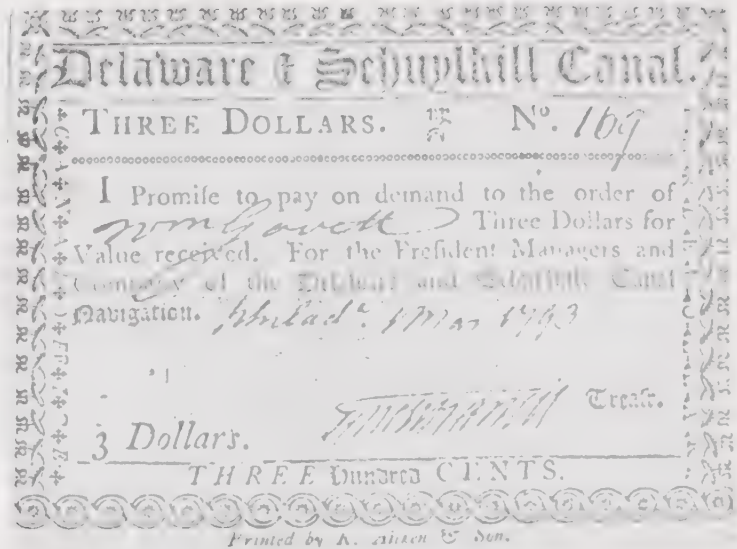 Delaware & Schuylkill Canal.
THREE DOLLARS. Nº. 169
I Promiſe to pay on demand to the order of
Wm Govett Three Dollars for
Value received. For the Preſident Managers and
Company of the Delaware and Schuylkill Canal
Navigation. Philadª. 1 Mar 1793
Treaſr.
3 Dollars.
THREE Hundred CENTS.
Printed by R. Aitken & Son.